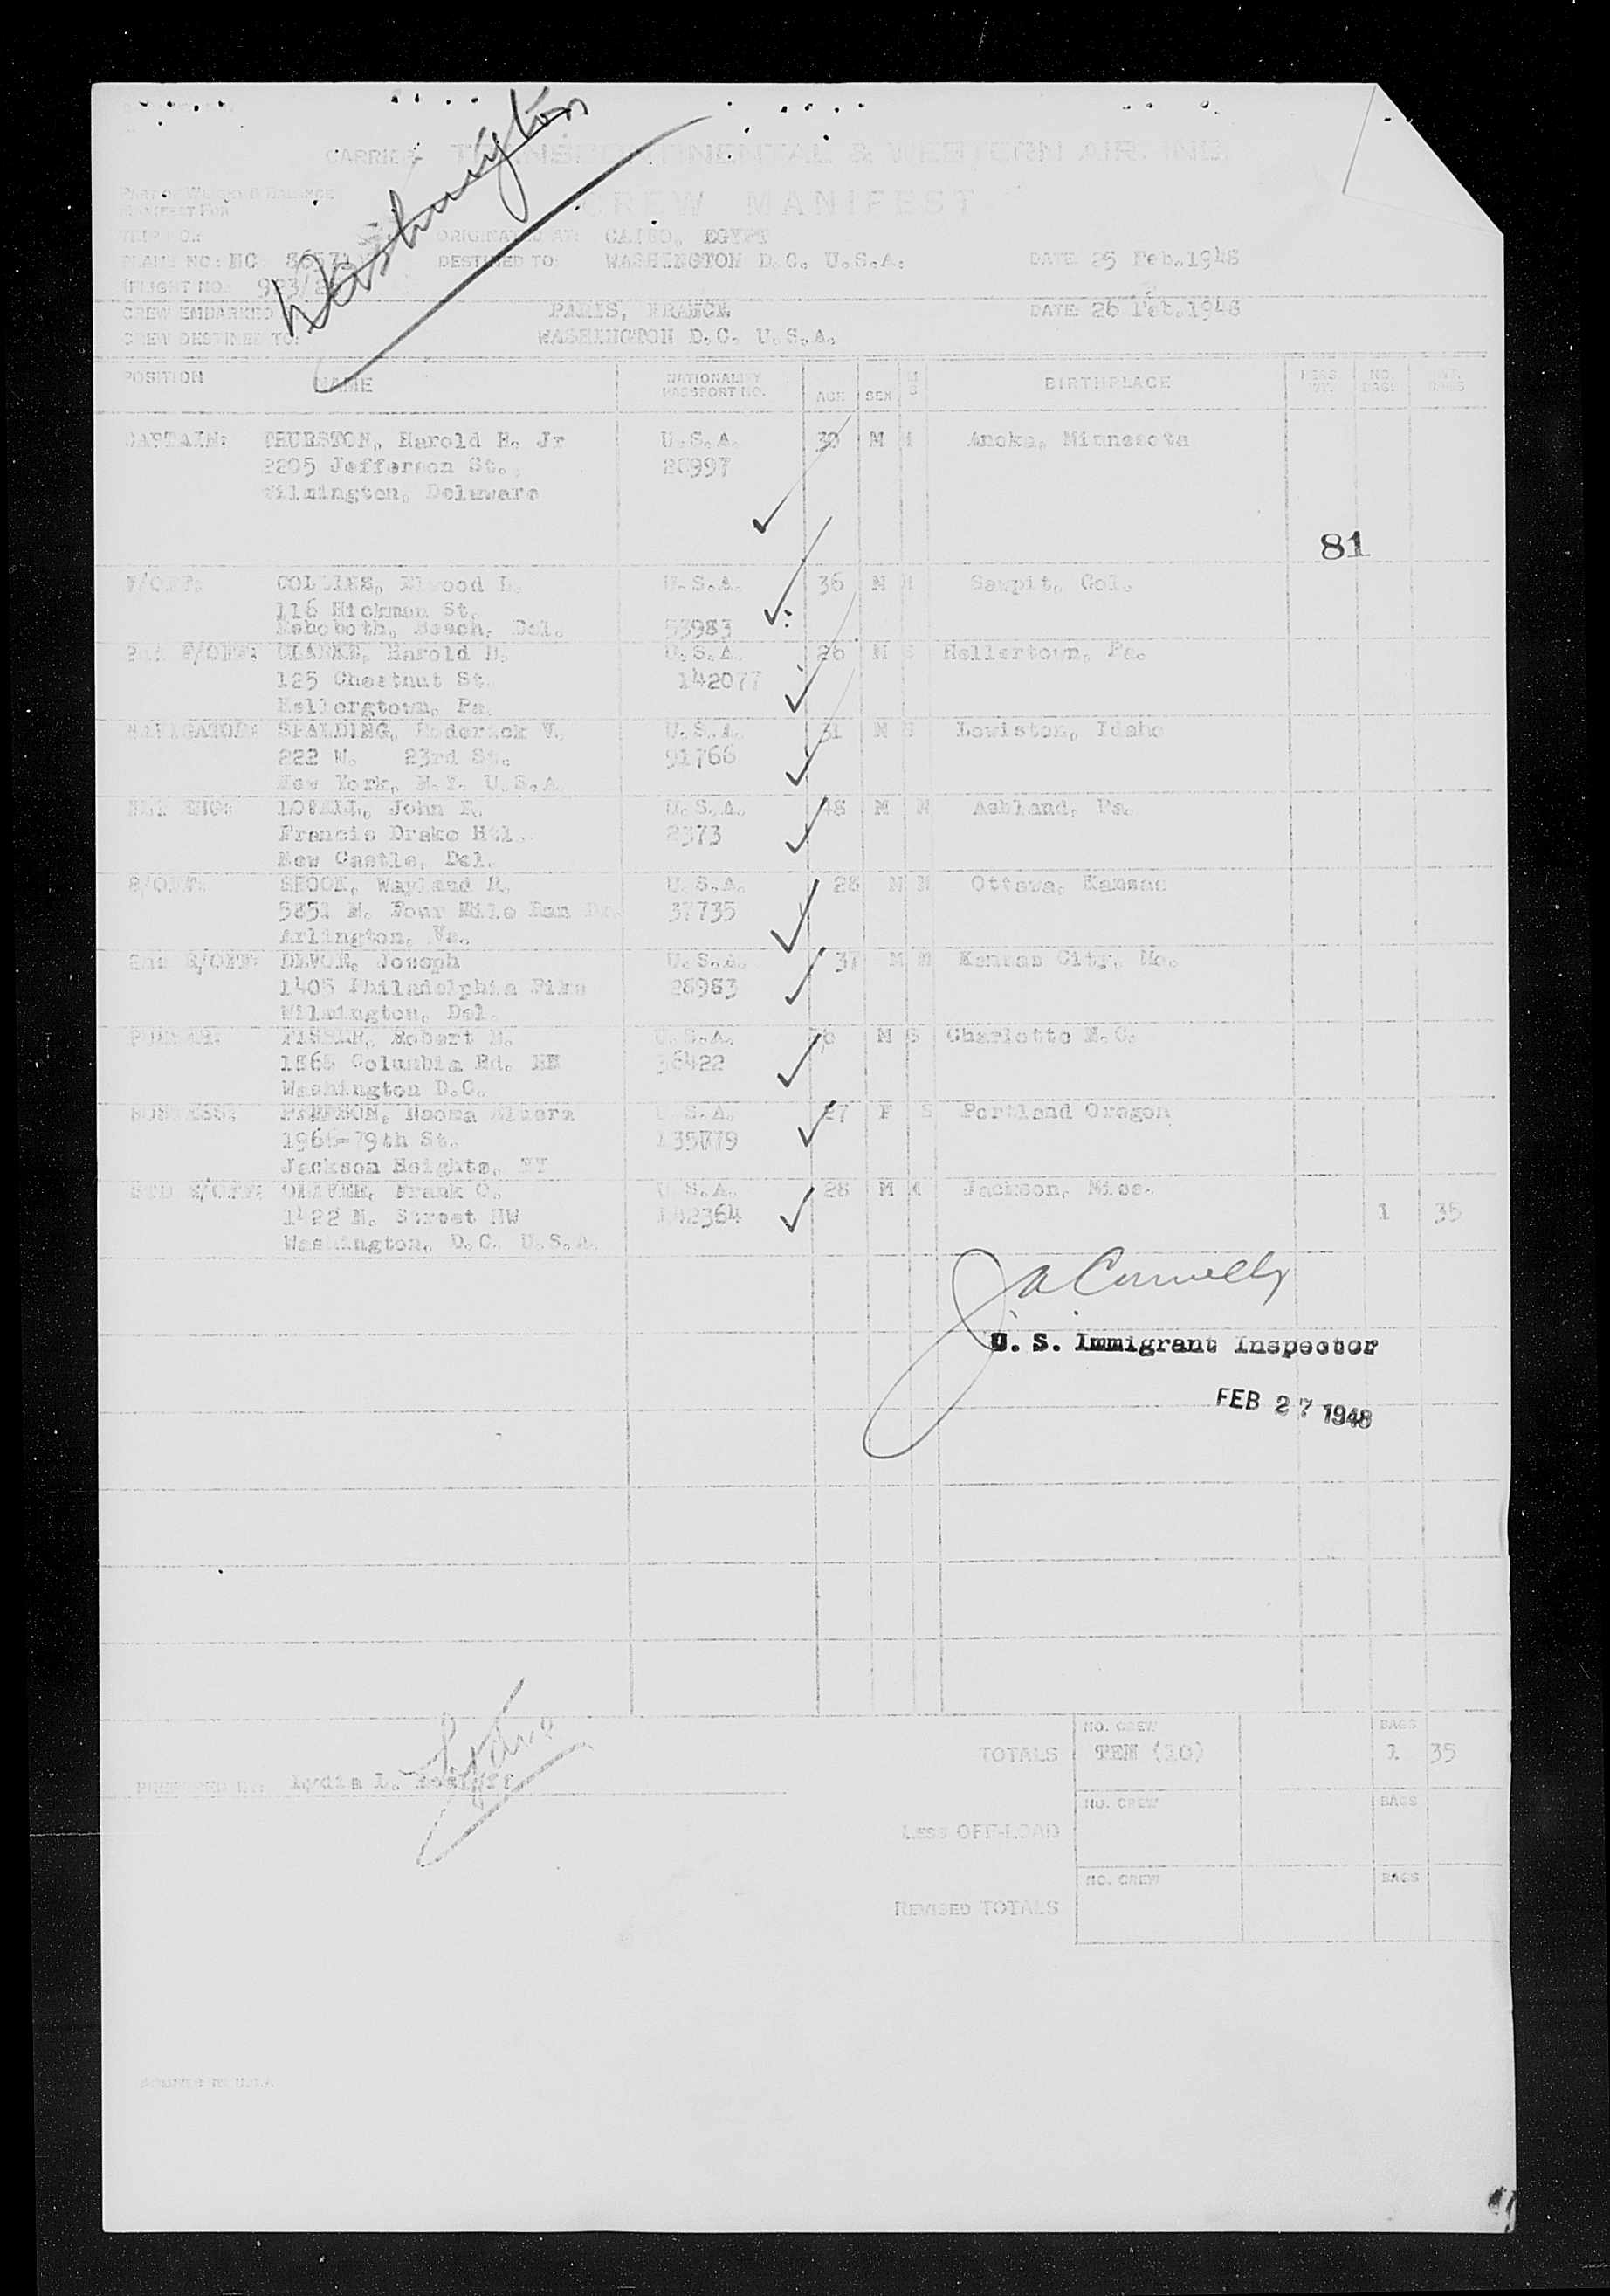 Washington
CARRIER TRANSCONTINENTAL & WESTERN AIR, INC.
CREW MANIFEST
PART OF WEIGHT & BALANCE
MANIFEST FOR
TRIP NO.: ORIGINATED AT: CAIRO, EGYPT
PLANE NO: NC 86571 DESTINED TO: WASHINGTON D.C. U.S.A. DATE 25 Feb.1948
FLIGHT NO.
CREW EMBARKED PARIS, FRANCE DATE: 26 Feb.1948
CREW DESTINED TO: WASHINGTON D.C. U.S.A.
POSITION NAME NATIONALITY PASSPORT NO. AGE SEX M S BIRTHPLACE PERS. WT. NO. BAGS WT. BAGS
CAPTAIN: THURSTON, Harold H. Jr U.S.A. 30 M M Anoka, Minnesota
2205 Jefferson St. 28997
Wilmington, Delaware
81
F/OFF: COLLINS, Elwood L. U.S.A. 36 M M Sawpit, Col.
116 Hickman St.
Rehoboth, Beach, Del. 53983
2nd F/OFF: CLARKE, Harold H. U.S.A. 26 M S Hellertown, Pa.
125 Chestnut St. 142077
Hellorgtown, Pa.
NAVIGATOR: SPALDING, Roderick V. U.S.A. 31 M S Lewiston, Idaho
222 W. 23rd St. 91766
New York, N.Y. U.S.A.
John R. U.S.A. 48 M M Ashland, Pa.
Francis Drake Htl. 2373
New Castle, Del.
R/OFF: Wayland R. U.S.A. 28 M M Ottawa, Kansas
5851 N. Four Mile Run Dr. 37735
Arlington, Va.
Joseph U.S.A. 37 M M Kansas City, Mo.
1405 Philadelphia Pike 28983
Wilmington, Del.
PURSER: Robert U.S.A. M S Charlotte N.C.
Columbia Rd. 38422
Washington D.C.
HOSTESS: U.S.A. 27 F S Portland Oregon
79th St.
Jackson Heights, NY
OLIVER, Frank C. U.S.A. 28 M M Jackson, Miss.
1422 N. Street NW 142364 1 35
Washington, D.C. U.S.A.
J A Connelly
U. S. Immigrant Inspector
FEB 27 1948
TOTALS NO. CREW TEN (10) BAGS 1 35
PREPARED BY: Lydia L.
NO. CREW BAGS
LESS OFF-LOAD
NO. CREW BAGS
REVISED TOTALS
PRINTED IN U.S.A.